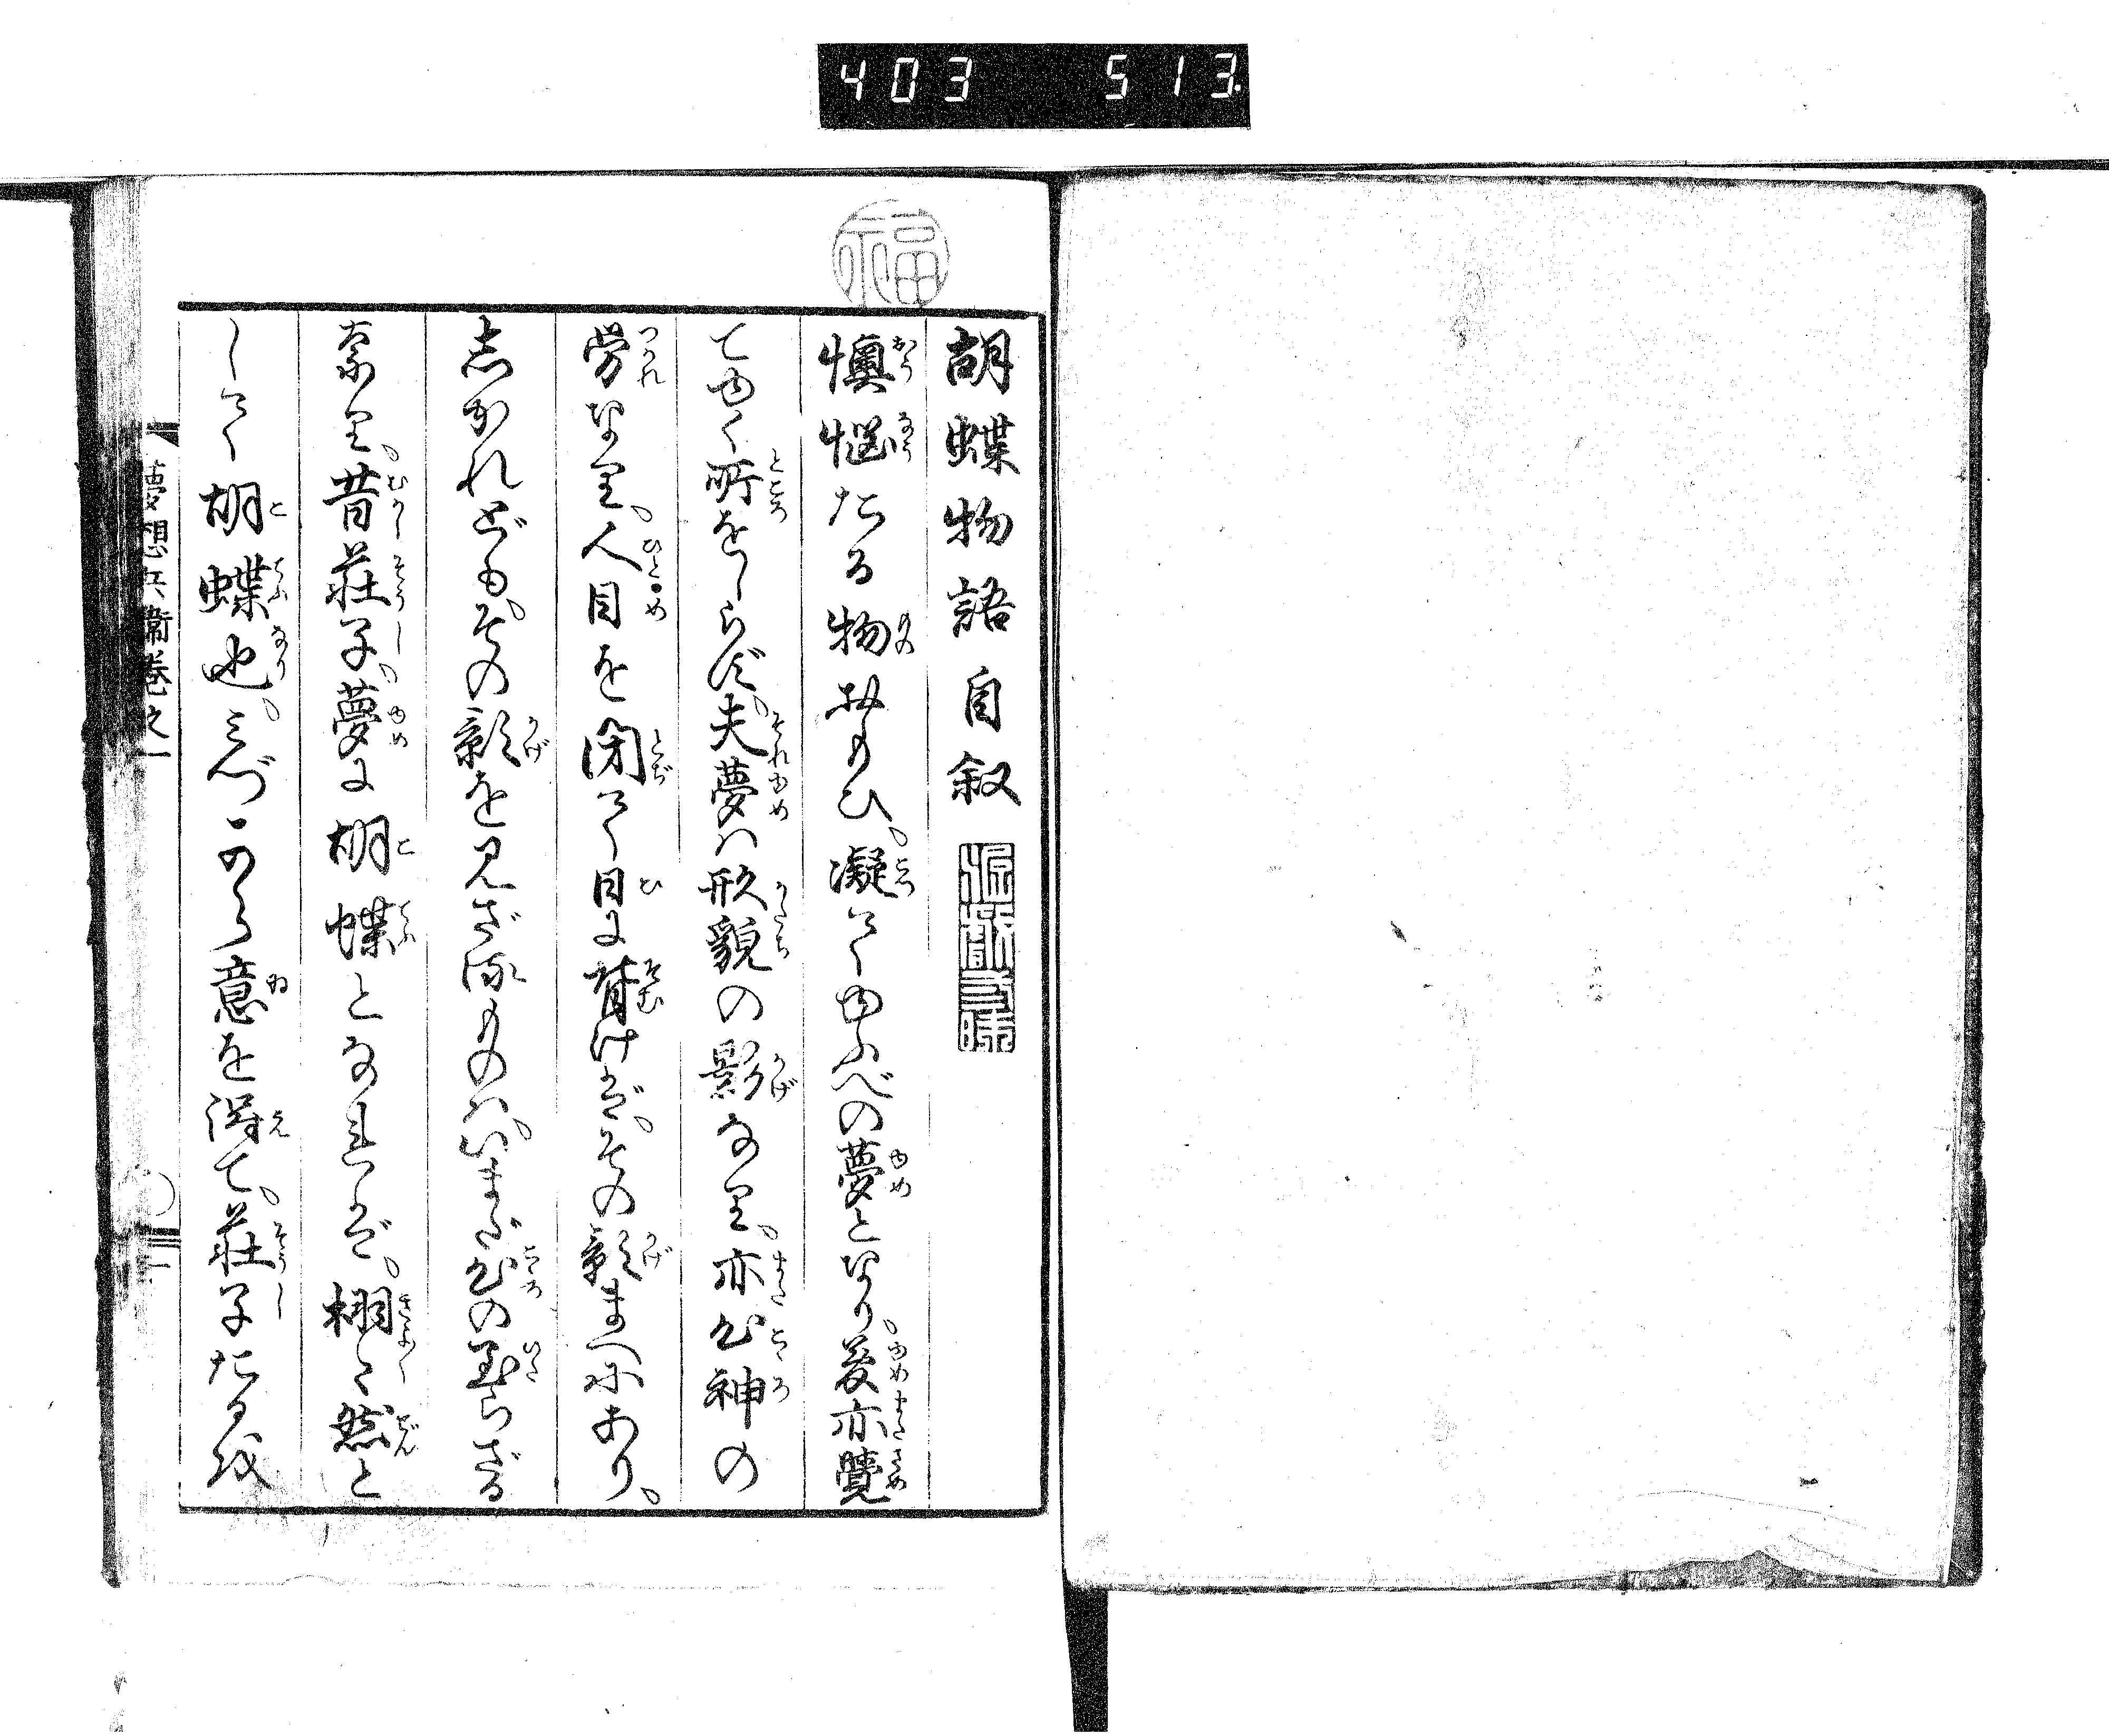 403 513
福
胡蝶物語自叙
懊悩たる物おもひ。凝てゆふべの夢となり。夢亦覺
てゆく所をしらず。夫夢ハ形貌の影なり。亦心神の
労なり。人目を閉て日に背けば。その影まへにあり。
しかれども。その影を見ざるものハ。いまだ心の至らざる
なり。昔荘子。夢に胡蝶となれば。栩々然と
して胡蝶也。みづから意を得て。荘子たるを
夢想兵衛巻之一